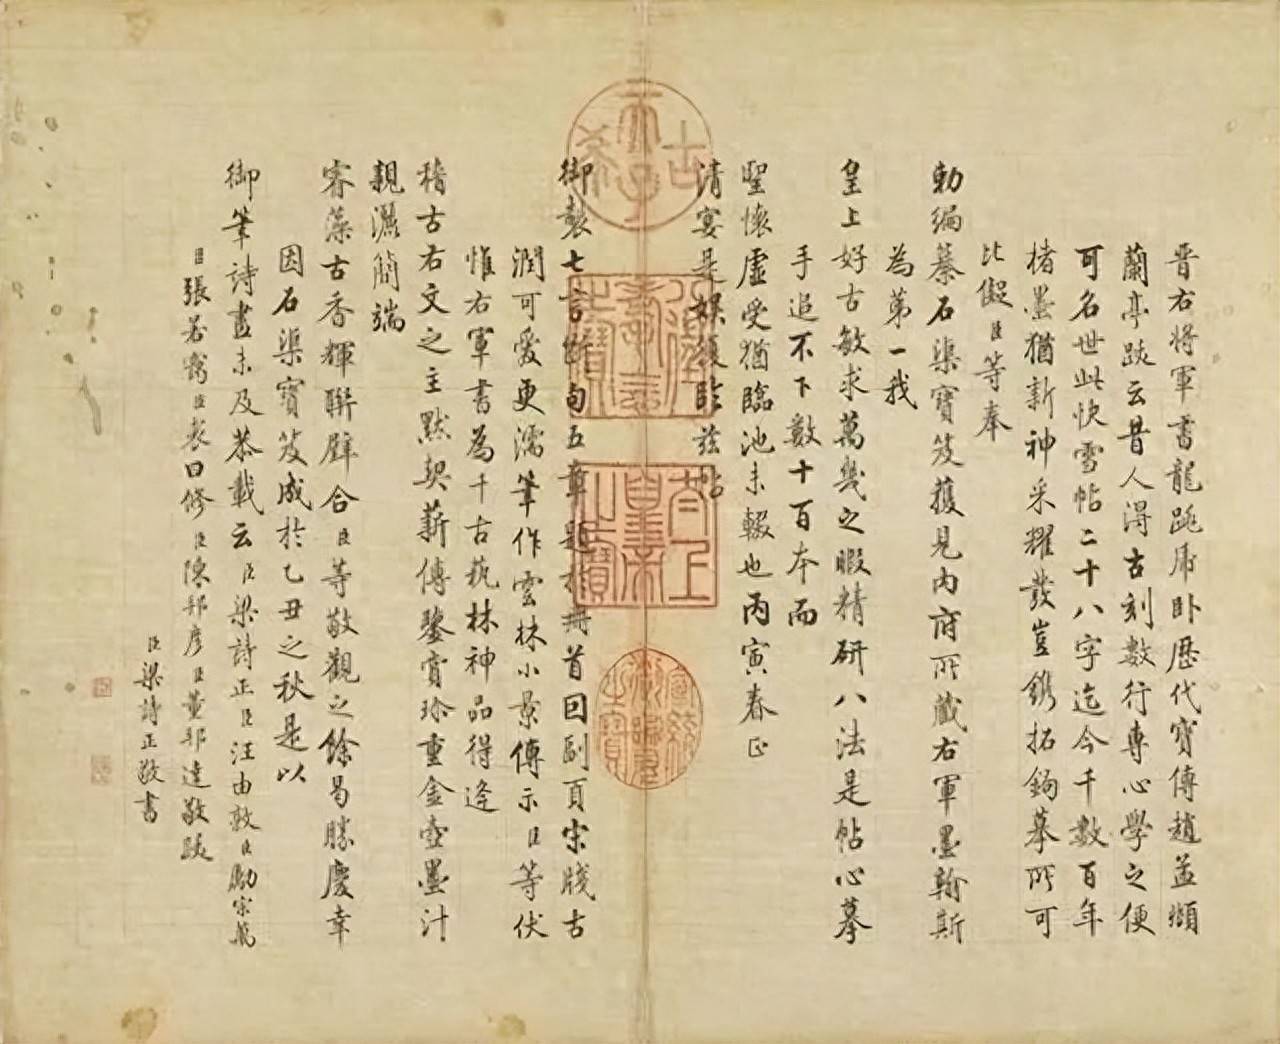 晉右將軍書龍跳虎臥歷代寶傳趙孟頫
蘭亭跋云昔人得古刻數行專心學之便
可名世此快雪帖二十八字迄今千數百年
楮墨猶新神采耀發豈鐫拓鉤摹所可
比儗臣等奉
勅編纂石渠寶笈獲見內府所藏右軍墨翰斯
為第一我
皇上好古敏求萬幾之暇精研八法是帖心摹
手追不下數十百本而
聖懷虛受猶臨池未輟也丙寅春正
清宴是娛復臨茲帖
御製七言斷句五章題於冊首回副頁宋牋古
潤可愛更濡筆作雲林小景傳示臣等伏
惟右軍書為千古藝林神品得逢
稽古右文之主默契薪傳鑒賞珍重金壺墨汁
親灑簡端
睿藻古香輝聯璧合臣等敬觀之餘曷勝慶幸
因石渠寶笈成於乙丑之秋是以
御筆詩畫未及恭載云臣梁詩正臣汪由敦臣勵宗萬
臣張若靄臣裘曰修臣陳邦彥臣董邦達敬跋
臣梁詩正敬書
古希天子
八徵耄念之寶
太上皇帝之寶